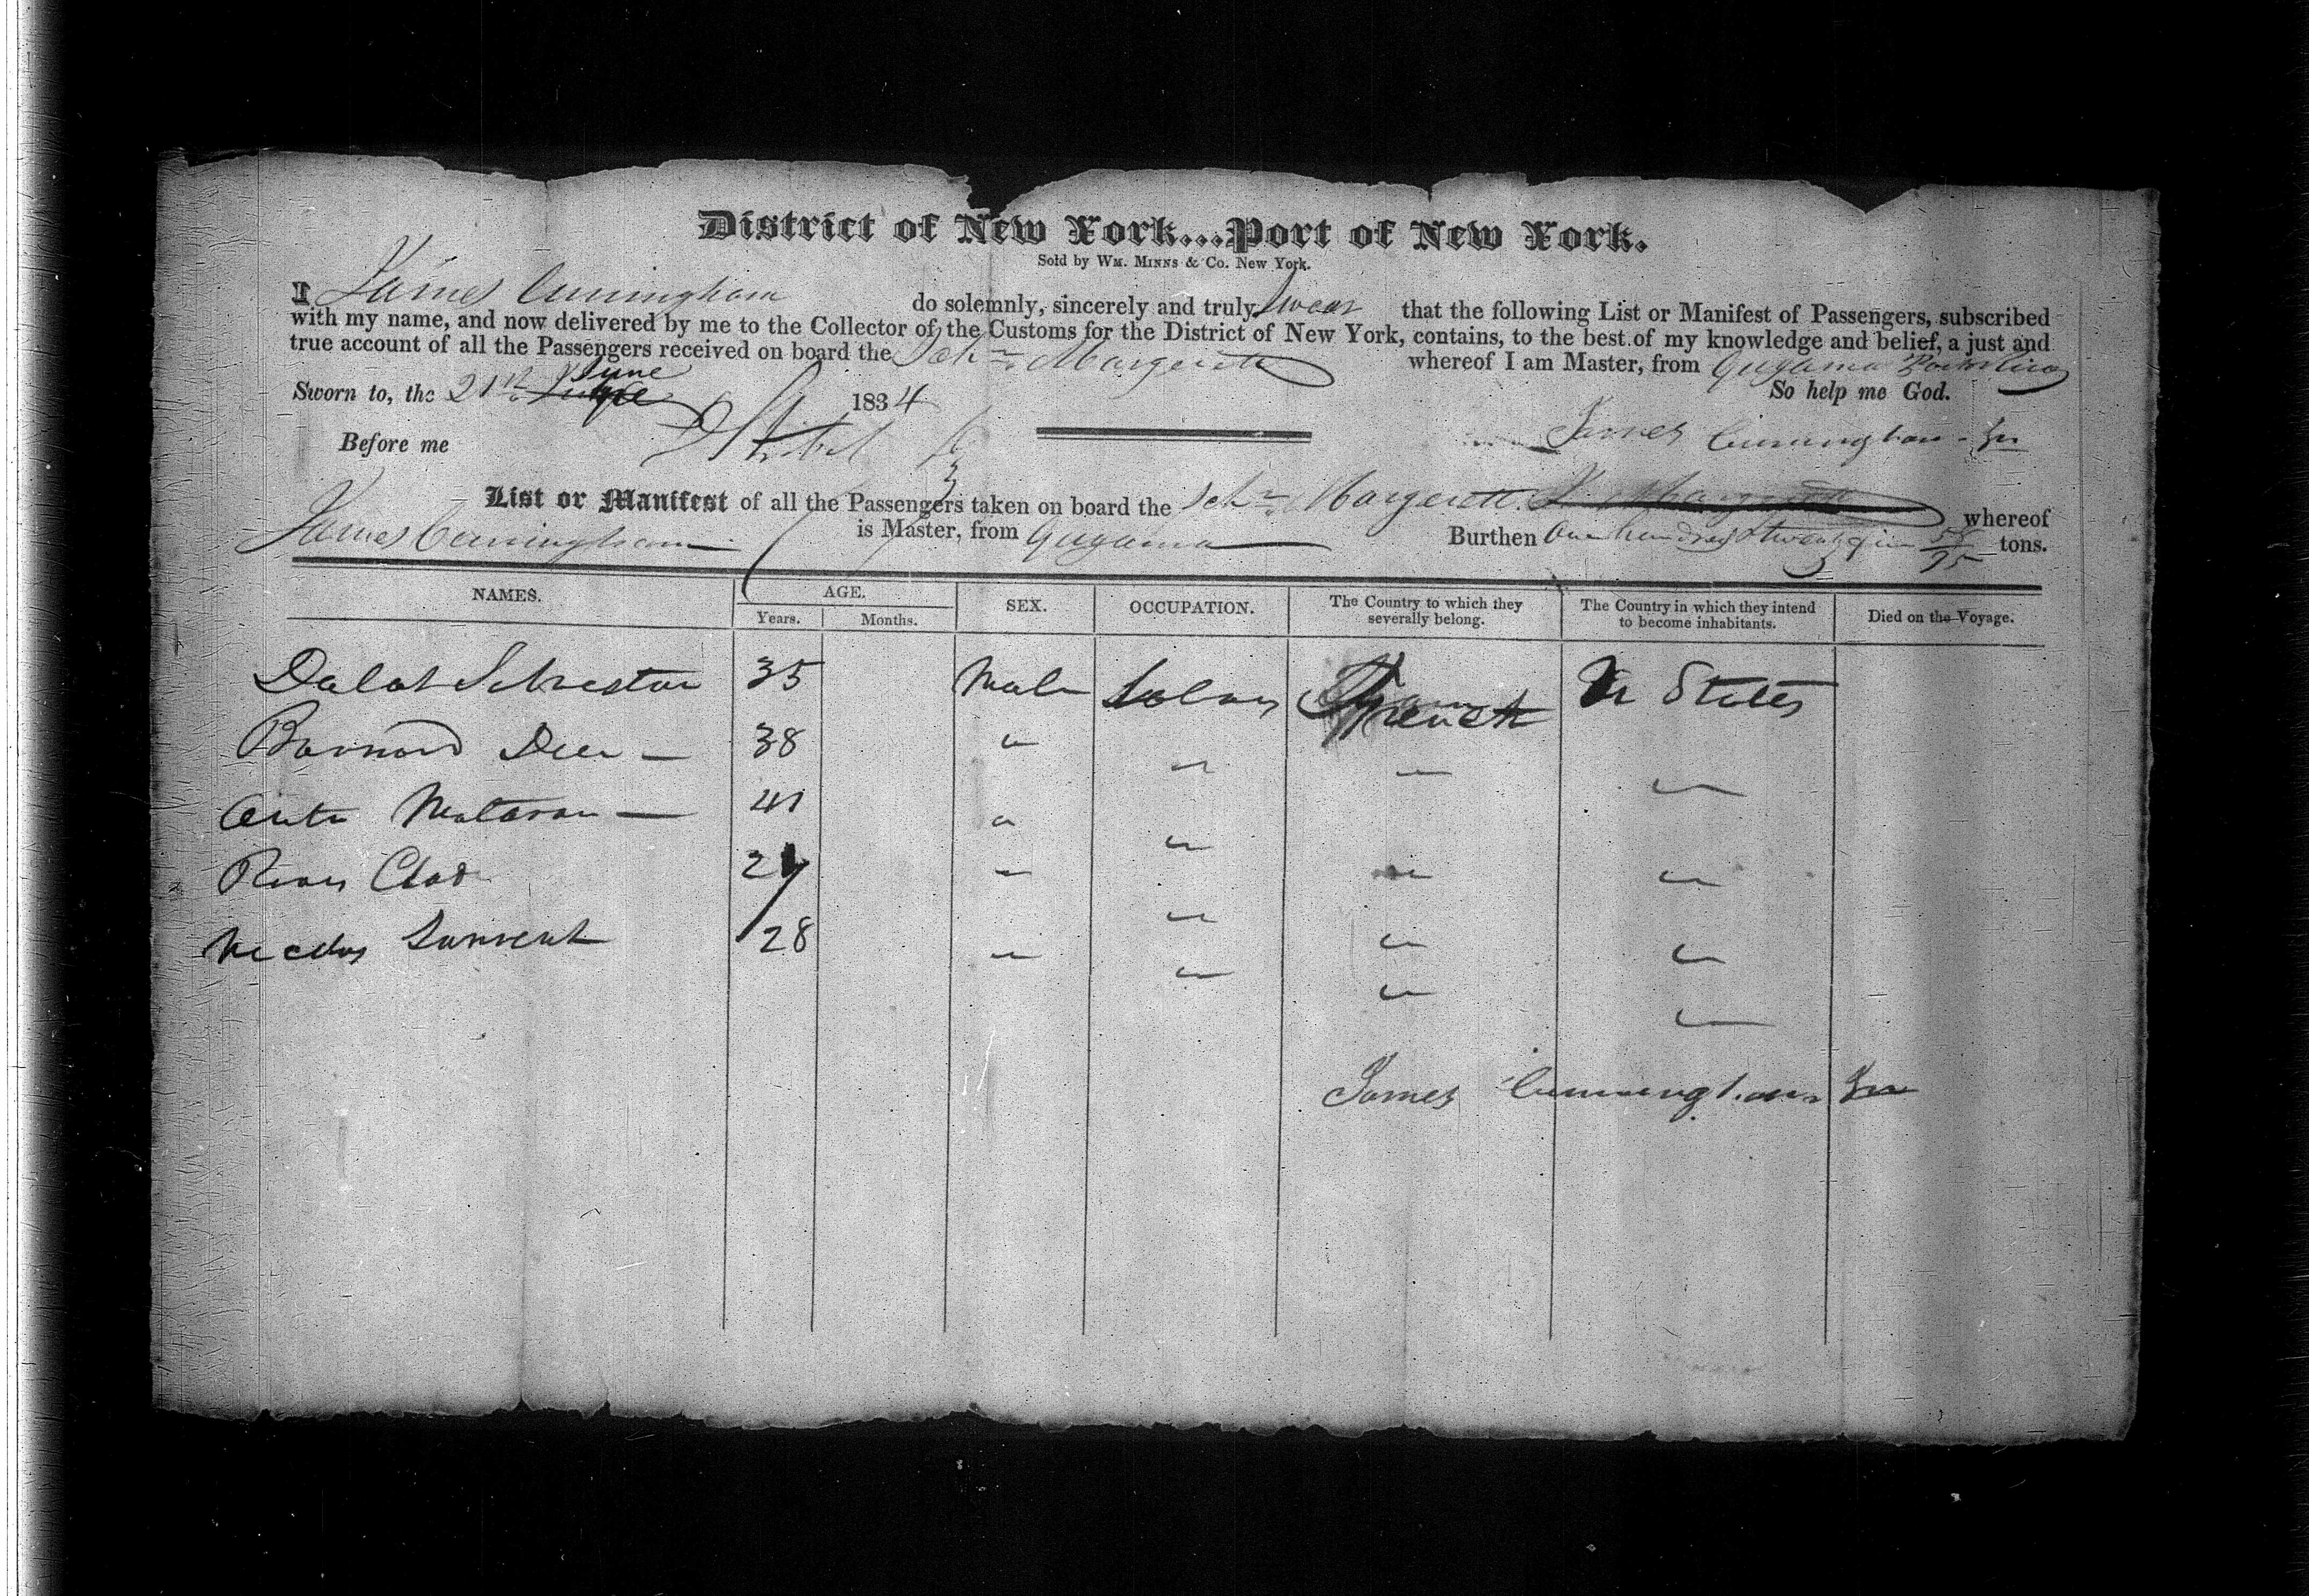 District of New York...Port of New York.
Sold by WM. MINNS & Co. New York.
I James Cunningham do solemnly, sincerely and truly swear that the following List or Manifest of Passengers, subscribed
with my name, and now delivered by me to the Collector of the Customs for the District of New York, contains, to the best of my knowledge and belief, a just and
true account of all the Passengers received on board the Schr Margerett whereof I am Master, from Guyama Porto Rico
Sworn to, the 21st June 1834 So help me God.
Before me James Cunningham Jr
List or Manifest of all the Passengers taken on board the Schr Margerett whereof
James Cunningham is Master, from Guyama Burthen One hundred & twenty five 58/95 tons.
NAMES. AGE. SEX. OCCUPATION. The Country to which they severally belong. The Country in which they intend to become inhabitants. Died on the Voyage.
Years. Months.
35 Male French U States
38 "
41 "
Clod "
28 "
James Cunningham Jr